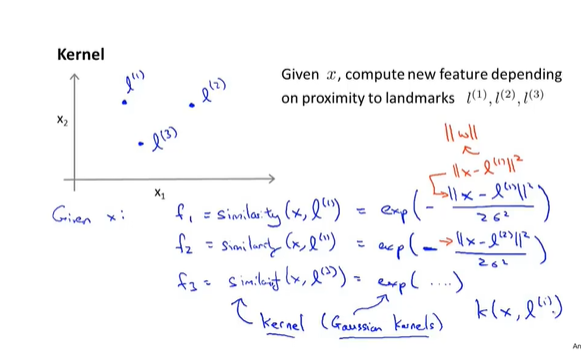 Kernel
l⁽¹⁾
l⁽²⁾
l⁽³⁾
x₂
x₁
Given x, compute new feature depending
on proximity to landmarks l⁽¹⁾, l⁽²⁾, l⁽³⁾
||w||
||x - l⁽¹⁾||²
Given x: f₁ = similarity(x, l⁽¹⁾) = exp(- ||x - l⁽¹⁾||² / 2σ²)
f₂ = similarity(x, l⁽¹⁾) = exp(- ||x - l⁽²⁾||² / 2σ²)
f₃ = similarity(x, l⁽³⁾) = exp(....)
kernel (Gaussian kernels) k(x, l⁽ⁱ⁾)
An